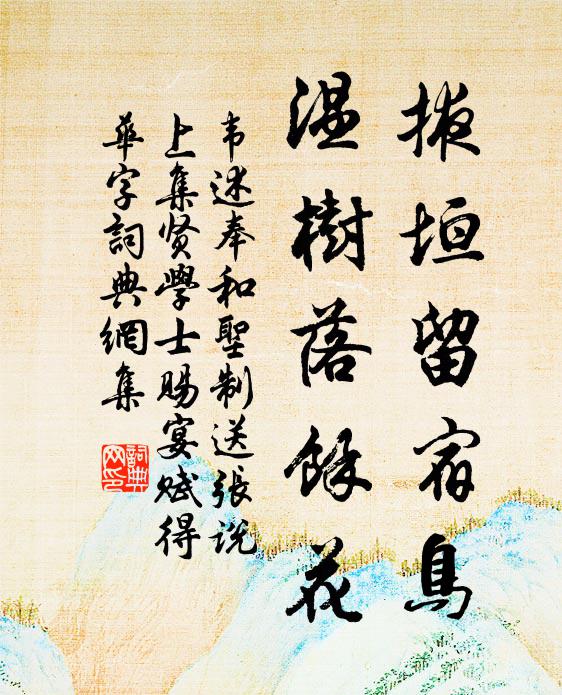 掖垣留宿鳥
温樹落餘花
韦述奉和聖制送張说
上集贤學士赐宴赋得
華字詞典網集
詞典
网印